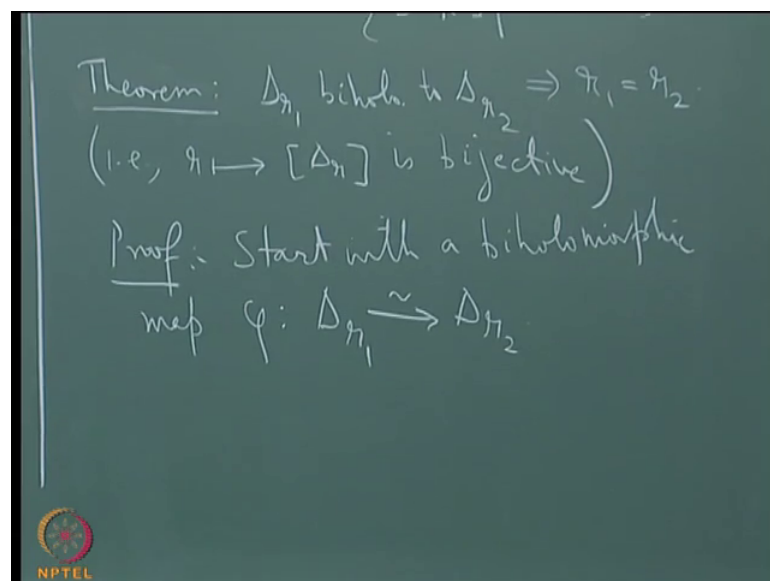 Theorem: Δ_{r_1} biholo. to Δ_{r_2} ⇒ r_1 = r_2.
(i.e., r ↦ [Δ_r] is bijective)
Proof:- Start with a biholomorphic
map φ: Δ_{r_1} →^~ Δ_{r_2}
NPTEL